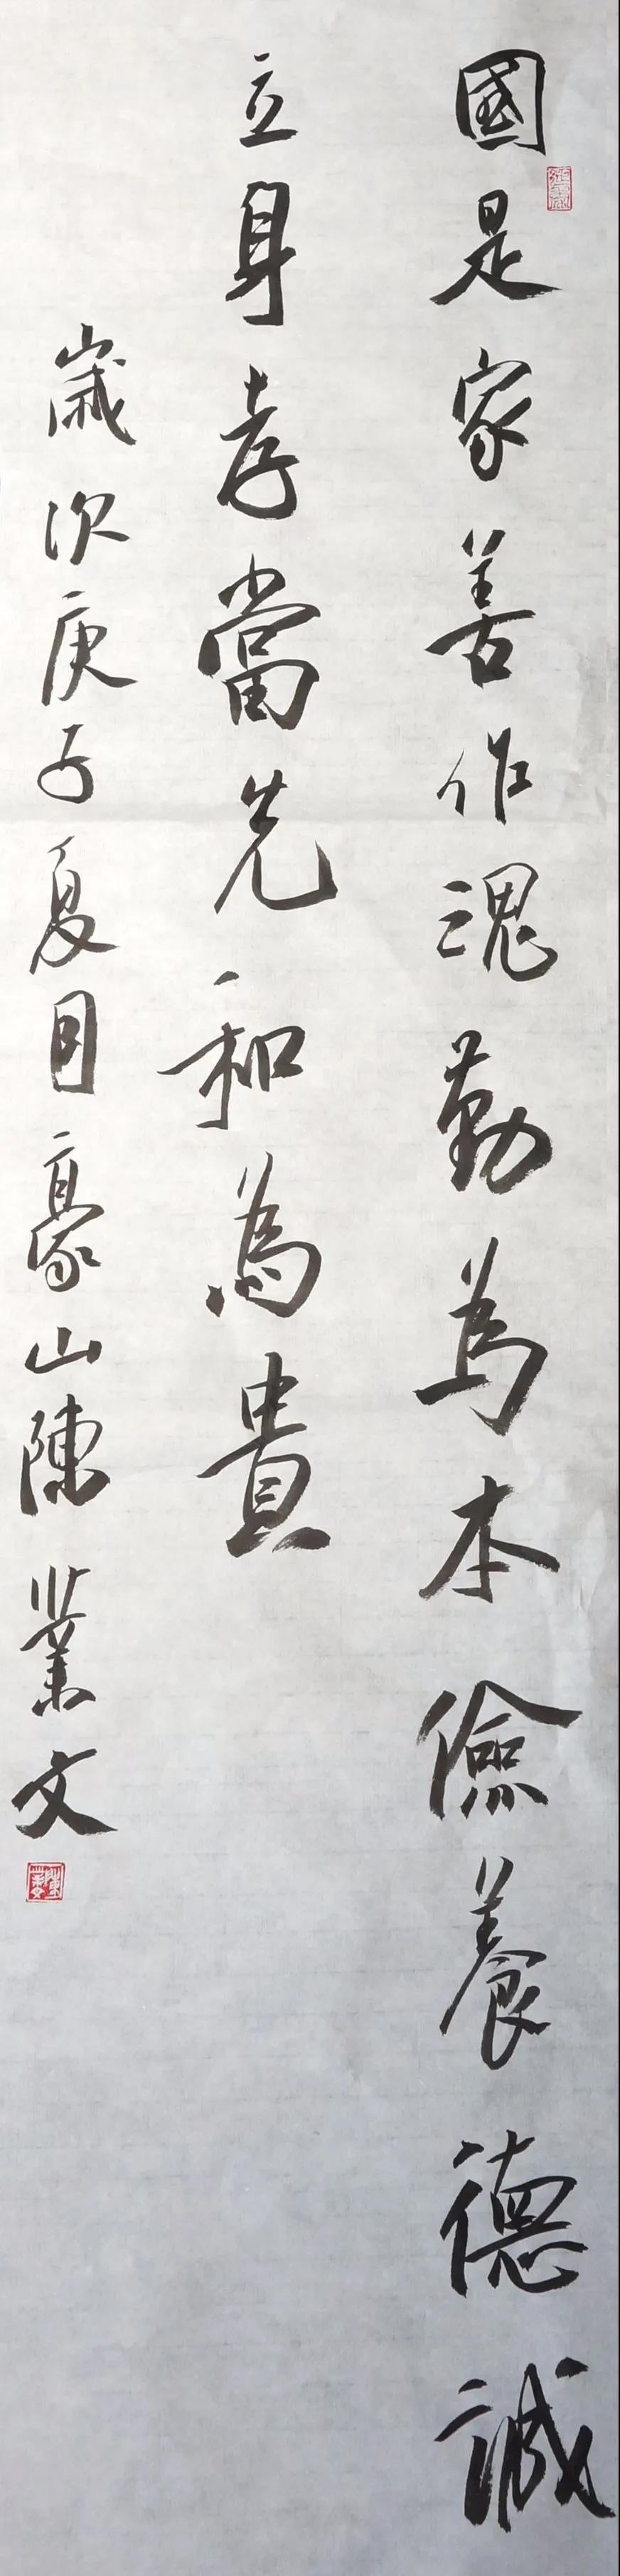 國是家善作魂勤為本儉養德誠
立身孝當先和為貴
歲次庚子夏月豪山陳業文